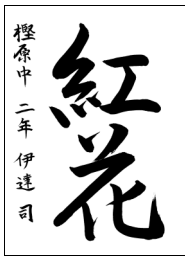 紅花
樫原中 二年 伊達 司